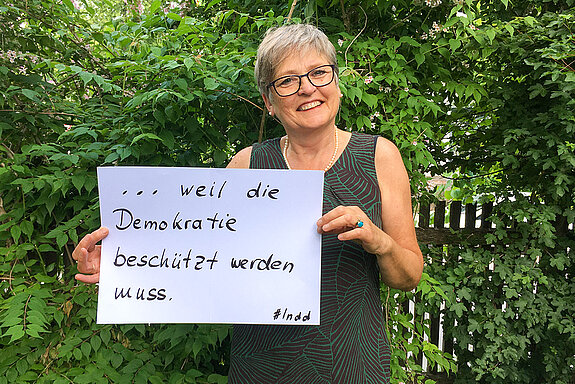 ... weil die
Demokratie
beschützt werden
muss.
#lndd